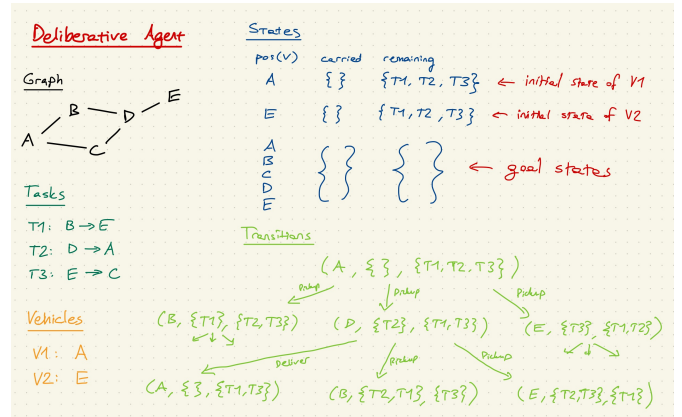 Deliberative Agent
Graph
A B C D E
Tasks
T1: B → E
T2: D → A
T3: E → C
Vehicles
V1: A
V2: E
States
pos(V) carried remaining
A { } {T1, T2, T3} ← initial state of V1
E { } {T1, T2, T3} ← initial state of V2
A
B
C { } { } ← goal states
D
E
Transitions
(A, { }, {T1, T2, T3})
Pickup Pickup Pickup
(B, {T1}, {T2,T3}) (D, {T2}, {T1,T3}) (E, {T3}, {T1,T2})
Deliver Pickup Pickup
(A, { }, {T1,T3}) (B, {T2,T1}, {T3}) (E, {T2,T3}, {T1})